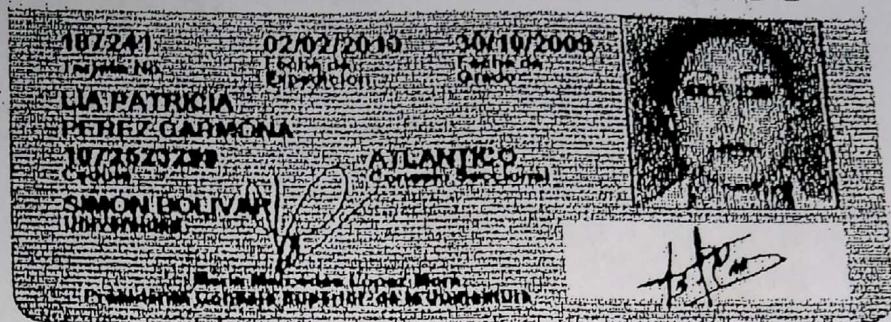 187241 02/02/2010 30/10/2009
Tarjeta No. Fecha de Fecha de
Expedicion Grado
LIA PATRICIA
PEREZ CARMONA
ATLANTICO
Cedula Consejo Seccional
SIMON BOLIVAR
Universidad
Lopez Mora
Presidente Consejo Superior de la Judicatura